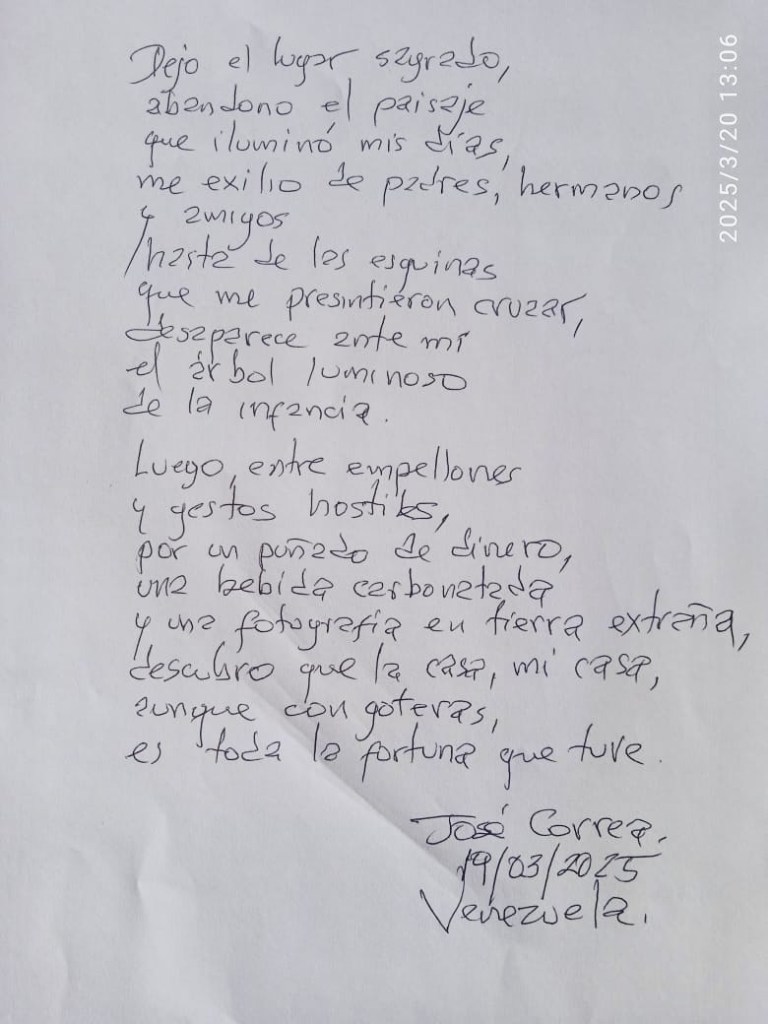 Dejo el lugar sagrado,
abandono el paisaje
que iluminó mis días,
me exilio de padres, hermanos
y amigos
/hasta de las esquinas
que me presintieron cruzar,
desaparece ante mí
el árbol luminoso
de la infancia.
Luego, entre empellones
y gestos hostiles,
por un puñado de dinero,
una bebida carbonatada
y una fotografía en tierra extraña,
descubro que la casa, mi casa,
aunque con goteras,
es toda la fortuna que tuve.
José Correa.
19/03/2025
Venezuela.
2025/3/20 13:06